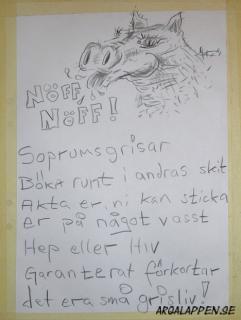 NÖFF,
NÖFF!
Soprumsgrisar
Böka runt i andras skit
Akta er, ni kan sticka
er på något vasst
Hep eller Hiv
Garanterat förkortar
det era små grisliv!
ARGALAPPEN.SE